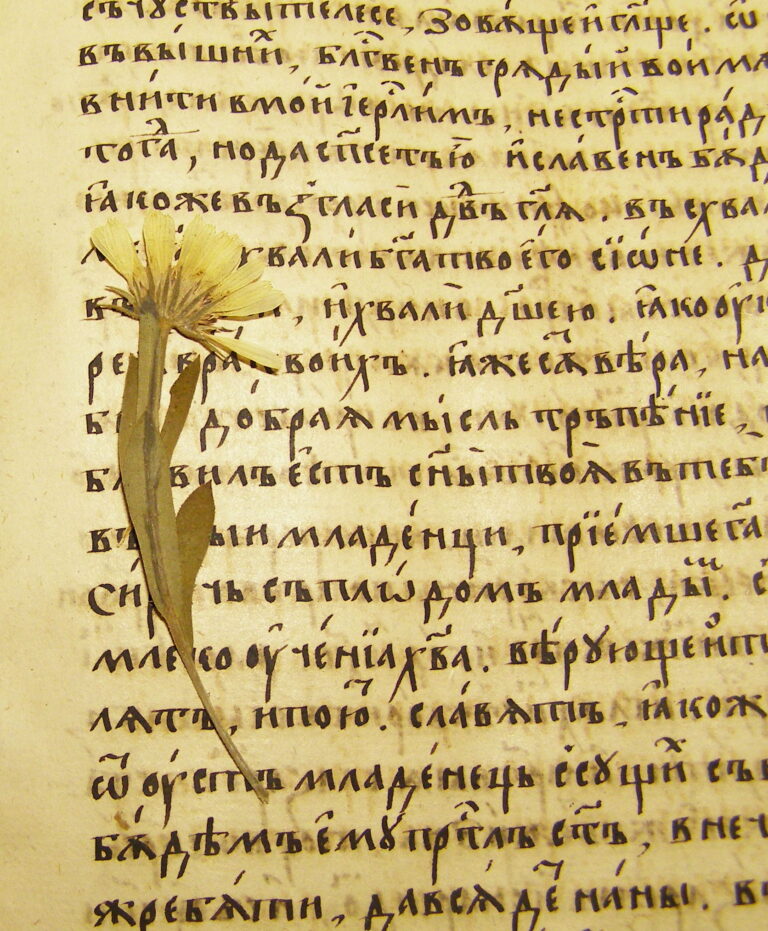 съчюствы телесе, зовѫщей гл҃ще. ѿ
въвышнїй, блг҃венъ грядый во
внити вмой і҆ерⷭ҇лимъ, не стрⷭ҇ти рад
тогⷣа, но да сп҃сетъ ю҆ и҆ славенъ бѫд
ꙗ҆коже въ гласи дв҃ѣ гл҃я. въсхва
хвали бг҃а твоего сїѡне. д
въ и҆хвали дш҃ею. ꙗ҆ко оу
воихъ. ꙗ҆же сѫ вѣра, на
добраꙗ мысль трьпѣнїе,
бл вилъ есть сн҃ы твоѧ въ теб
въ ыи младенци, прїемше г҃а
сирѣчь съ плѡдомъ младыⷯ.
млеко оученїа хв҃а. вѣрующеи
лятъ, и пою҆. славятъ, ꙗ҆кож
ѿ оустъ младенець ссущиⷯ съв
бѫдѣмъ емꙋ прⷭ҇тлъ ст҃ъ, в неч
жребѫти, да всядеⷮ на ны. в